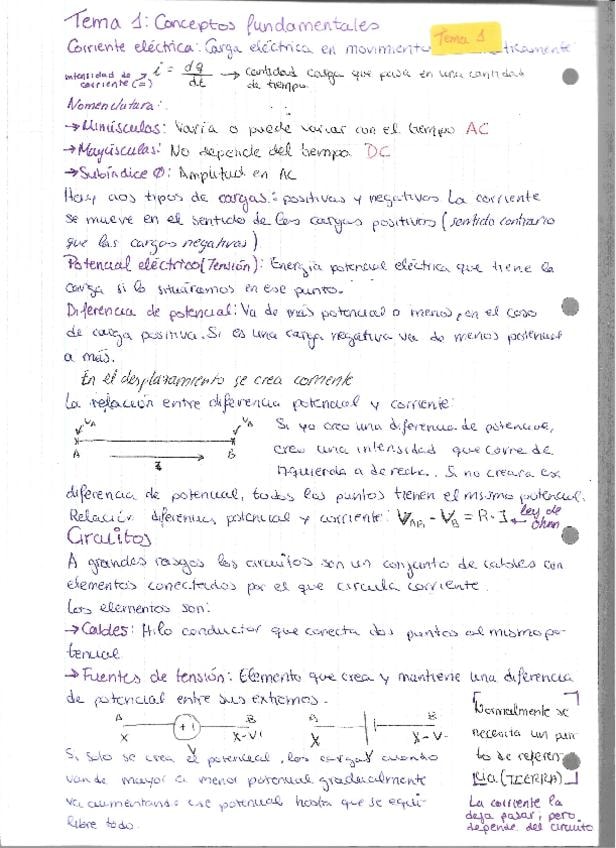 Tema 1: Conceptos fundamentales
Tema 1
Corriente eléctrica: Carga eléctrica en movimiento
intensidad de corriente (=) i = dq/dt → cantidad carga que pasa en una cantidad
de tiempo.
Nomenclatura:
→Minúsculas: Varía o puede variar con el tiempo AC
→Mayúsculas: No depende del tiempo DC
→Subíndice 0: Amplitud en AC
Hay dos tipos de cargas: positivas y negativas La corriente
se mueve en el sentido de las cargas positivas (sentido contrario
que las cargas negativas)
Potencial eléctrico (Tensión): Energía potencial eléctrica que tiene la
carga si la situáramos en ese punto.
Diferencia de potencial: Va de más potencial a menos, en el caso
de carga positiva. Si es una carga negativa va de menos potencial
a más.
En el desplazamiento se crea corriente
La relación entre diferencia potencial y corriente:
VA VA
A B
I
Si yo creo una diferencia de potencial,
creo una intensidad que corre de
izquierda a derecha. Si no creara esa
diferencia de potencial, todos los puntos tienen el mismo potencial.
Relación diferencia potencial y corriente: - VB = R·I ← ley de ohm
Circuitos
A grandes rasgos los circuitos son un conjunto de cables con
elementos conectados por el que circula corriente.
Los elementos son:
→Cables: Hilo conductor que conecta dos puntos al mismo po-
tencial
→Fuentes de tensión: Elemento que crea y mantiene una diferencia
de potencial entre sus extremos.
A B A B
X V X-V X V X-V
[Normalmente se
necesita un pun-
to de referen-
cia (TIERRA)]
Si solo se crea el potencial, las cargas cuando
van de mayor a menor potencial gradualmente
va aumentando ese potencial hasta que se equi-
libre todo.
La corriente la
deja pasar, pero
depende del circuito